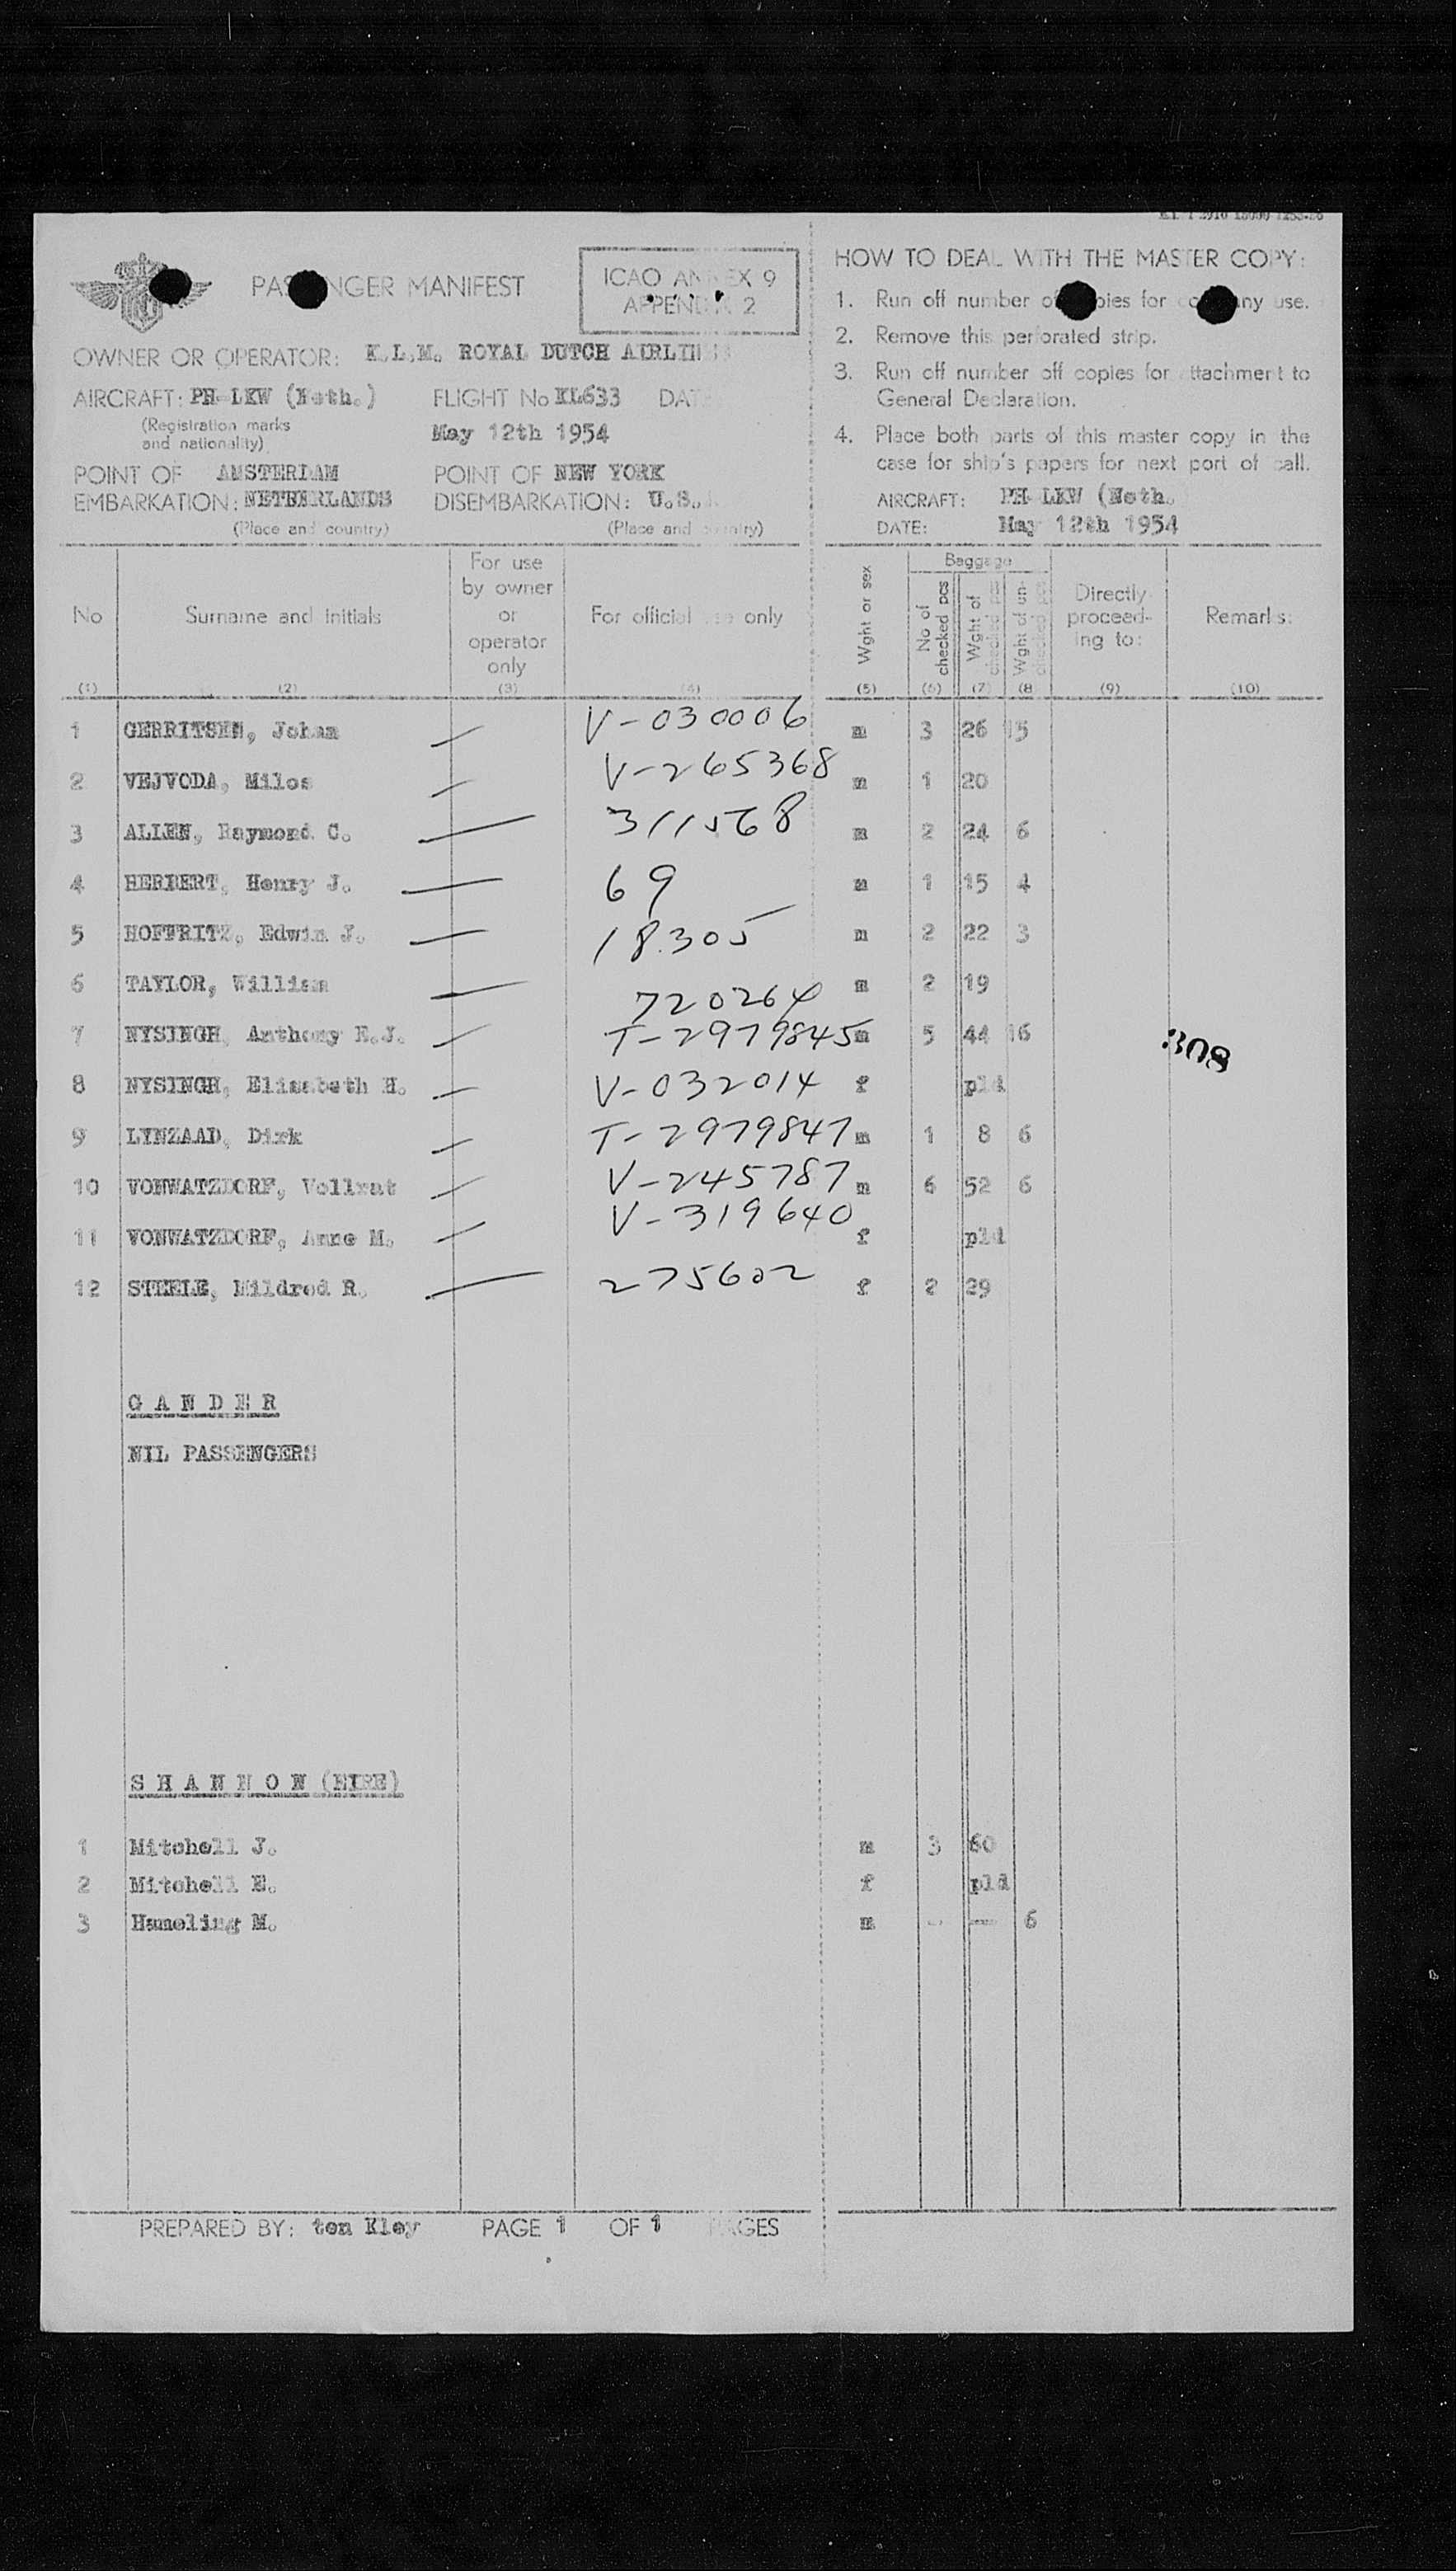 PASSENGER MANIFEST
ICAO ANNEX 9
APPENDIX 2
OWNER OR OPERATOR: K.L.M. ROYAL DUTCH AIRLINES
AIRCRAFT: PH-LKW (Neth.) FLIGHT No KL633 DATE
(Registration marks
and nationality)
May 12th 1954
POINT OF AMSTERDAM POINT OF NEW YORK
EMBARKATION: NETHERLANDS DISEMBARKATION: U.S.
(Place and country) (Place and country)
HOW TO DEAL WITH THE MASTER COPY:
1. Run off number of copies for company use.
2. Remove this perforated strip.
3. Run off number off copies for attachment to
General Declaration.
4. Place both parts of this master copy in the
case for ship's papers for next port of call.
AIRCRAFT: PH-LKW (Neth.
DATE: May 12th 1954
No Surname and initials For use by owner or operator only For official use only Wght or sex Baggage No of checked pcs Wght of checked Wght of un-checked Directly proceed-ing to: Remarks:
(1) (2) (3) (4) (5) (6) (7) (8) (9) (10)
1 GERRITSEN, Johan V-030006 m 3 26 15
2 VEJVODA, Milos V-265368 m 1 20
3 ALLEN, Raymond C. 311568 m 2 24 6
4 HERBERT, Henry J. 69 m 1 15 4
5 HOFFRITZ, Edwin J. 18305 m 2 22 3
6 TAYLOR, William 720264 m 2 19
7 NYSINGH, Anthony E.J. T-2979845 m 5 44 16
308
8 NYSINGH, Elisabeth H. V-032014 f pld
9 LYNZAAD, Dirk T-2979847 m 1 8 6
10 VONWATZDORF, Vollrat V-245787 m 6 52 6
11 VONWATZDORF, Anne M. V-319640 f pld
12 STEELE, Mildred R. 275602 f 2 29
G A N D E R
NIL PASSENGERS
S H A N N O N (EIRE)
1 Mitchell J. m 3 60
2 Mitchell E. f pld
3 Hameling M. m - -- 6
PREPARED BY: ten Kley PAGE 1 OF 1 PAGES